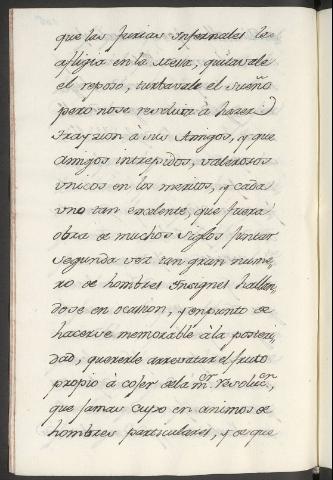 que las furias infernales le
afligia en la Mesa, quitavale
el reposo, turbavale el sueño
pero nose resolvia à hazer
Trayzion à sus Amigos, y que
amigos intrepidos, valerosos
vnicos en los meritos, y cada
vno tan excelente, que fuera
obra de muchos siglos juntar
segunda vez tan gran nume,
ro de hombres Insignes hallen,
dose en ocasion, y enpunto de
hacerse memorable à la posteri,
dad, quererle arrevatar el fruto
propio à cojer dela mor. resolucon,
que jamas cupo en animos de
hombres particulares, y de que